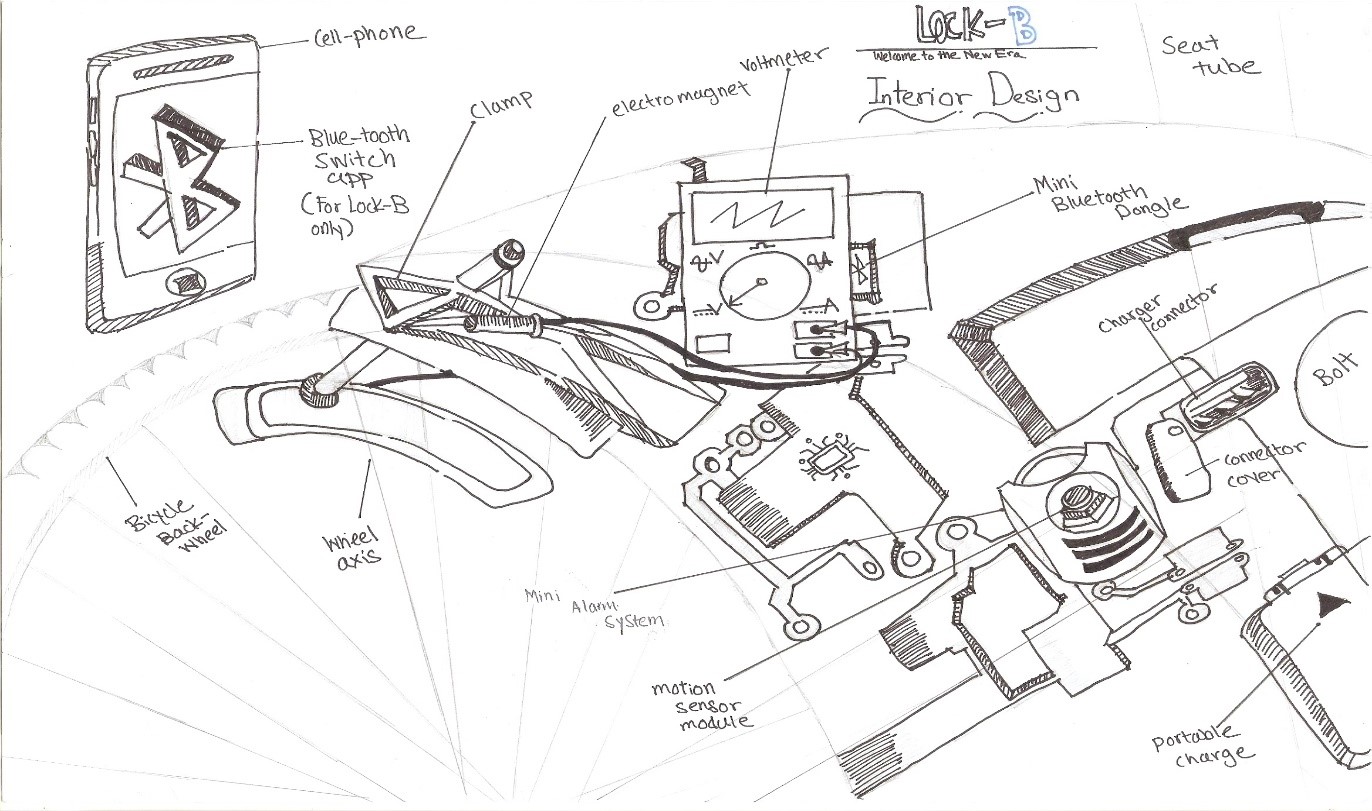 LOCK-B
Welcome to the New Era
Interior Design
Seat
tube
Cell-phone
Blue-tooth
Switch
app
(For Lock-B
only)
Clamp
electromagnet
Voltmeter
Mini
Bluetooth
Dongle
V
A
V
A
charger
connector
Bolt
connector
cover
Bicycle
Back-
wheel
Wheel
axis
Mini Alarm
System
motion
sensor
module
portable
charge